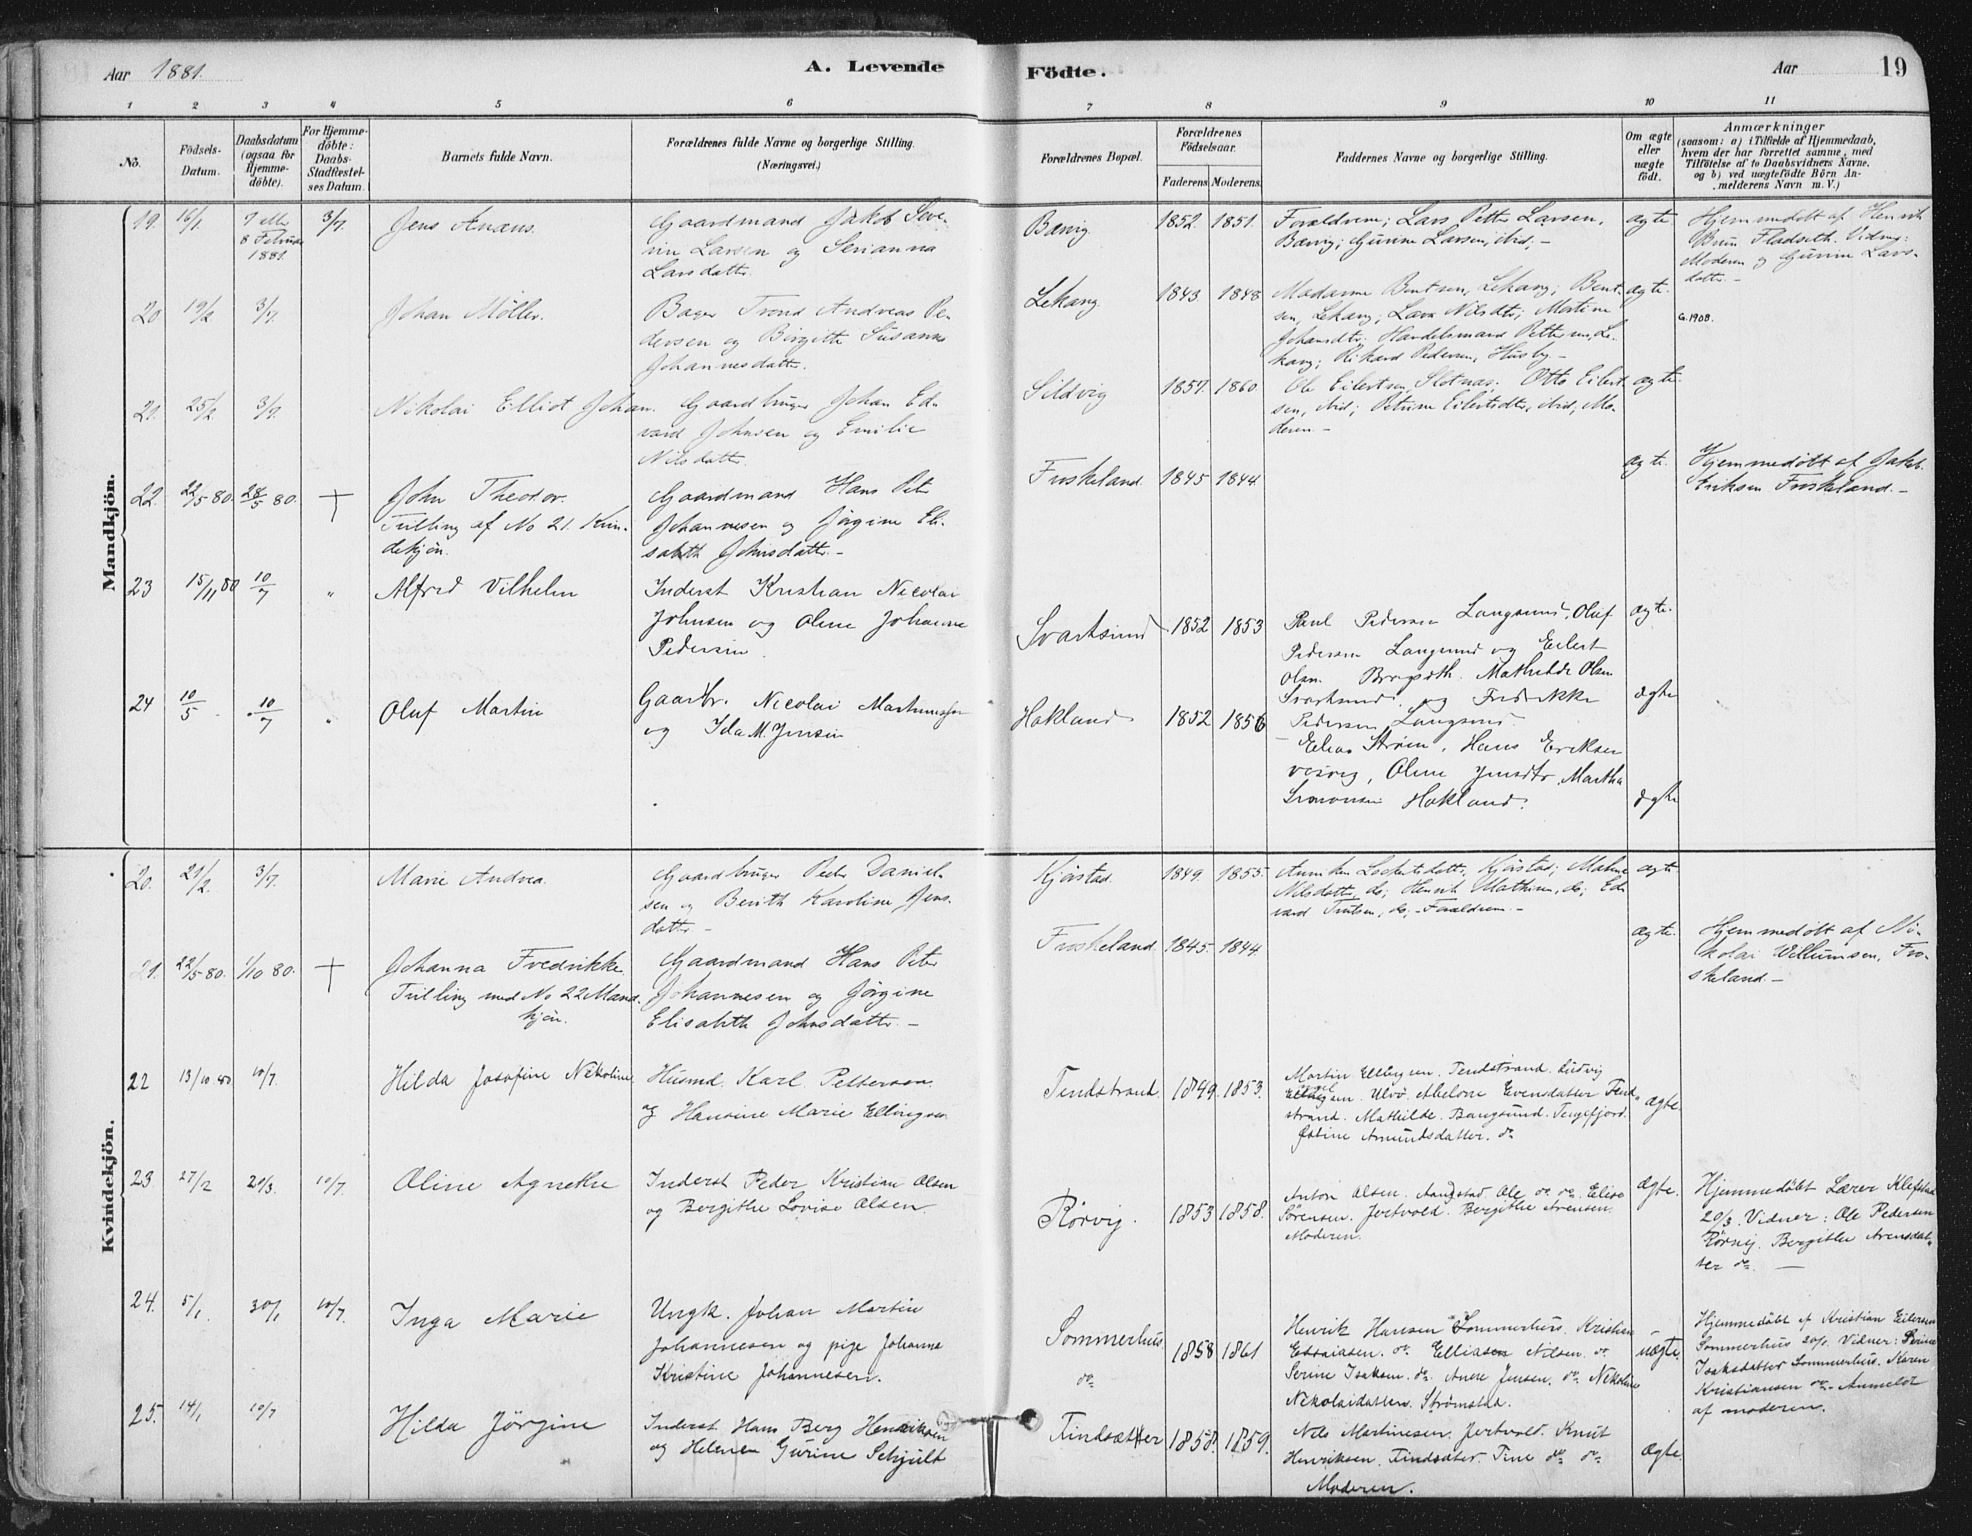 Aar 1881. A. Levende Födte. Aar 19
1 2 3 4 5 6 7 8 9 10 11
No.
Födsels-
Datum.
Daabsdatum
(ogsaa for
Hjemme-
döbte).
For Hjemme-
döbte:
Daabs-
Stadfæstel-
ses Datum.
Barnets fulde Navn.
Forældrenes fulde Navne og borgerlige Stilling.
(Næringsvei.)
Forældrenes Bopæl.
Forældrenes
Födselsaar.
Faderens. Moderens.
Faddernes Navne og borgerlige Stilling.
Om ægte
eller
uægte
födt.
Anmærkninger
(saasom: a) i Tilfælde af Hjemmedaab,
hvem der har forrettet samme, med
Tilföielse af to Daabsvidners Navne,
og b) ved uægtefödte Börn An-
melderens Navn m. V.)
Mandkjön.
19. 16/1 7 eller
8 Februar
1881. 3/7.
Jens Anæus.
Gaardmand Jakob Seve-
rin Larsen og Serianna
Larsdatter.
Bærvig. 1852. 1851.
Forældrene; Lars Petter Larsen,
Bærvig; Gurine Larsen, ibid; -
ægte.
Hjemmedøbt af Henrik
Bruun Fladseth. Vidner:
Moderen og Gurine Lars-
datter. -
20 19/2. 3/7.
Johan Møller.
Bager Trond Andreas Pe-
dersen og Birgitte Susanna
Johannesdatter.
Lekang. 1843. 1848.
Madame Bentsen, Lekang; Bent-
sen, Lekang; Lava Nilsdtr; Martine
Johansdtr; Handelsmand Pettersen, Le-
kang; Rikard Pedersen, Husby. -
ægte.
G. 1908.
21. 25/2. 3/7.
Nikolai Elliot Johan.
Gaardbruger Johan Ed-
vard Johnsen og Emilie
Nilsdatter.
Sildvig 1857. 1860.
Ole Eilertsen, Slotnæs; Otto Eilert-
sen, ibid; Petrine Eilertsdtr, ibid; Mo-
deren. -
ægte.
22. 22/5 80. 28/5 80. +
John Theodor.
Tvilling af No 21. Kvin-
dekjøn.
Gaardmand Hans Peter
Johannesen og Jørgine Eli-
sabeth Johnsdatter. -
Froskeland. 1845. 1844.
ægte.
Hjemmedøbt af Jakob
Eriksen Froskeland. -
23 15/11 80 10/7 "
Alfred Vilhelm
Inderst Kristian Nicolai
Johnsen og Oline Johanne
Pedersen.
Svartsund 1852 1853
Paul Pedersen Langsund, Oluf
Pedersen Langsund og Eilert
Olsen. Mathilde Olsen
Svartsund og Fredrikke
Pedersen Langsund
ægte.
24 10/5 10/7 "
Oluf Martin
Gaardbr. Nicolai Martinussen
og Ida M. Jensen
Hakland 1852 1856
Elias Strøm, Hans Eriksen
Oline Jensdtr, Martha
Simonsen Hakland.
ægte
ægte
Kvindekjön.
20. 21/2. 3/7.
Marie Andrea.
Gaardbruger Peder Daniel-
sen og Berith Karoline Jens-
datter. -
Kjørstad. 1849. 1855.
Anniken Lockertsdatter, Kjørstad; Malene
Nilsdatter, do; Henrik Mathisen, do; Ed-
vard Trutsen, do; Forældrene. -
ægte
21. 22/5 80. 1/10 80. +
Johanna Fredrikke
Tvilling med No 22 Mand-
kjøn.
Gaardmand Hans Peter
Johannesen og Jørgine
Elisabeth Johnsdatter. -
Froskeland. 1845. 1844.
ægte.
Hjemmedøbt af Ni-
kolai Willumsen, Fro-
skeland. -
22 13/10 80. 10/7.
Hilda Josefine Nekoline
Husmd. Karl Pettersen
og Hansine Marie Ellingsen
Tendstrand. 1849. 1853.
Martin Ellingsen. Tendstrand. Ludvig
Ellingsen. Ulvø. Abelone Evensdatter Tend-
strand. Mathilde. Bangsund. Tengefjord.
Østine Amundsdatter. do
ægte.
23 27/2 20/3. 10/7.
Oline Agnethe
Inderst Peder Kristian Olsen
og Bergithe Lovise Olsen.
Rørvig. 1853 1858.
Anton Olsen. Aandstad. Ole do do. Elise
Sørensen. Jertvold. Bergithe Arensen.
Moderen.
ægte.
Hjemmedøbt Lærer Klefstad
20/3. Vidner: Ole Pedersen
Rørvig. Bergithe Arensdat-
ter do. —
24. 5/1. 30/1 10/7.
Inga Marie
Ungk. Johan Martin
Johannesen og pige Johanna
Kristine Johannesen.
Sommerhus.
do
1858 1861
Henrik Hansen Sommerhus. Kristian
Essaiasen. do Elliasen Nilsen. do
Serine Isaksen. do Anne Jensen. do Nekoline
Nikolaidatter. Strømstad.
uægte.
Hjemmedøbt af Kristian Eilersen
Sommerhus 20/1. Vidner: Serine
Isaksdatter Sommerhus. Karen
Kristiansen do. Anmeldt
af moderen.
25. 14/1 10/7
Hilda Jörgine
Inderst Hans Berg Henriksen
og Helene Gurine Schjult
Findsætter 1858. 1859.
Nils Martinesen. Jertvold. Knut
Henriksen. Findsæter. Tine do do
Moderen.
Ægte.